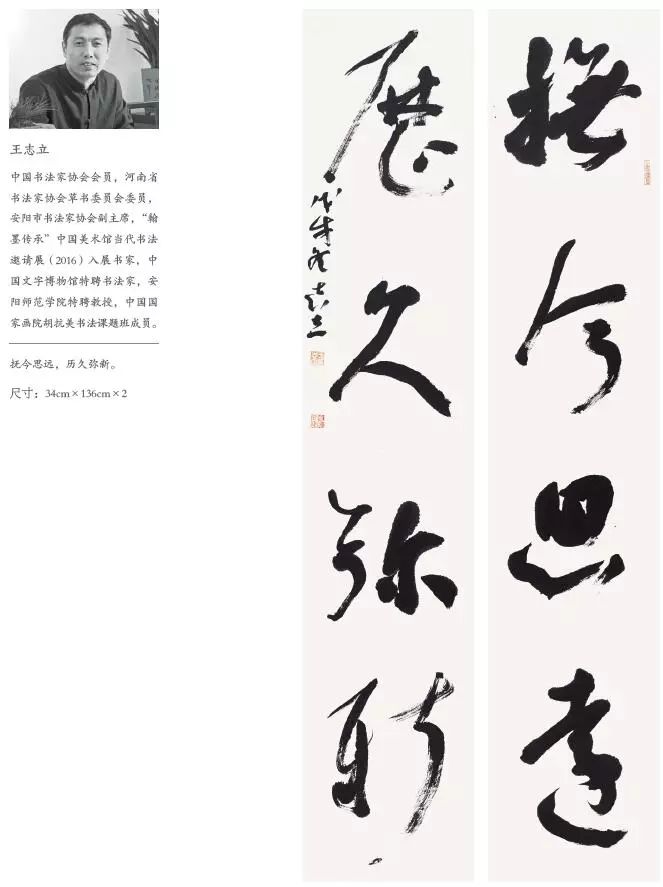 王志立
中国书法家协会会员，河南省
书法家协会草书委员会委员，
安阳市书法家协会副主席，“翰
墨传承”中国美术馆当代书法
邀请展（2016）入展书家，中
国文字博物馆特聘书法家，安
阳师范学院特聘教授，中国国
家画院胡抗美书法课题班成员。
抚今思远，历久弥新。
尺寸：34cm×136cm×2
撫今思遠
歷久弥新
戊戌冬志立